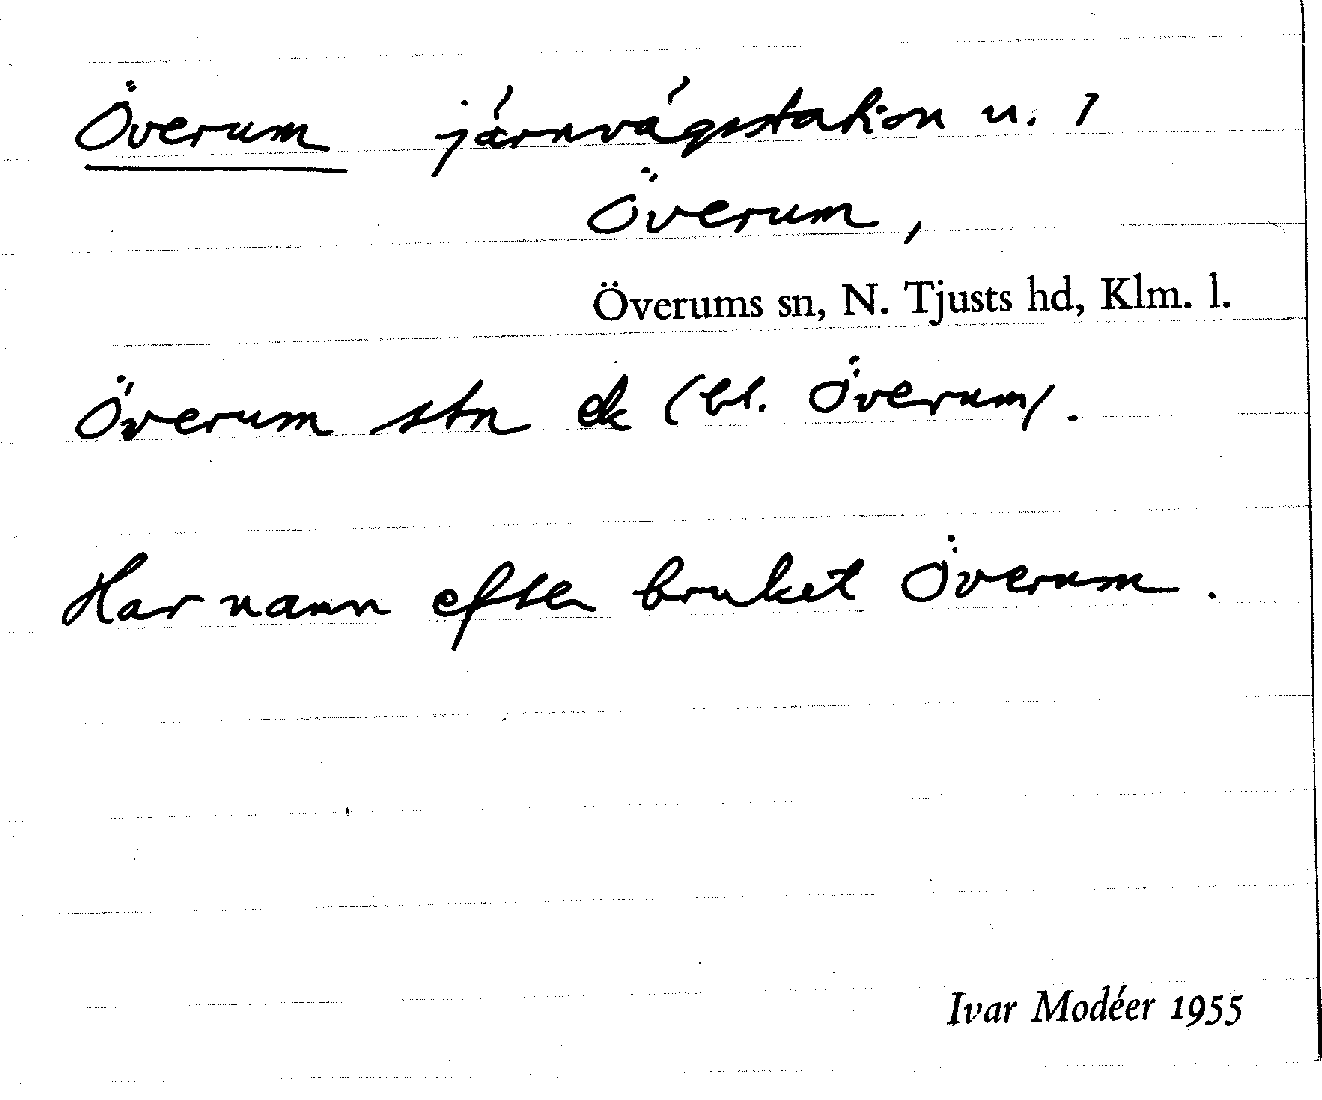 Överum järnvägsstation u. 1
Överum,
Överums sn, N. Tjusts hd, Klm. l.
Överum stn ek (bl. Överum).
Har namn efter bruket Överum.
Ivar Modéer 1955